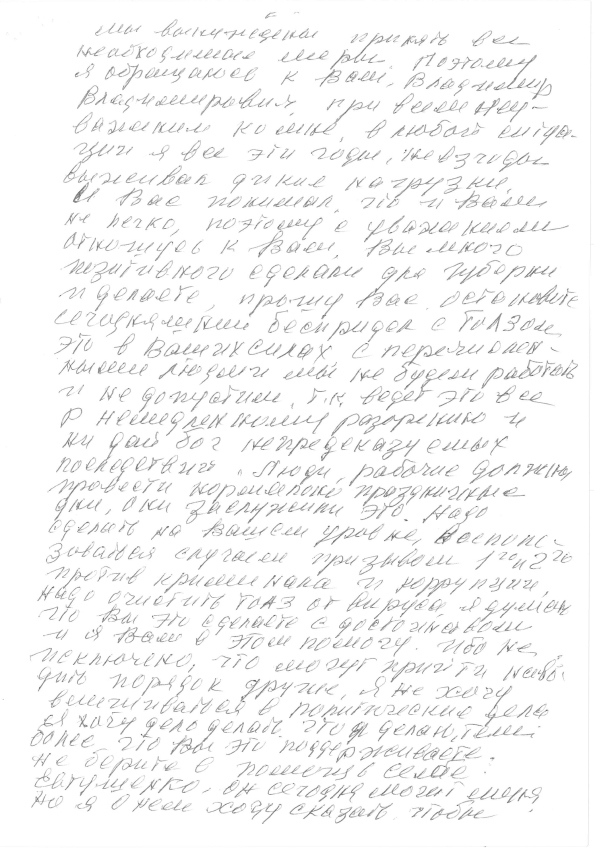 мы вынуждены принять все
необходимые меры. Поэтому
я обращаюсь к Вам, Владимир
Владимирович, при всем неу-
важении ко мне, в любой ситуа-
ции я все эти годы, невзгоды
выживал дикие нагрузки,
и Вас понимал, что и Вам
не легко, поэтому с уважением
отношусь к Вам, Вы много
позитивного сделали для губернии
и делаете, прошу Вас остановите
сегодняшний беспридел с ТоАЗом
это в Ваших силах, с перечислен-
ными людьми мы не будем работать
и не допустим, т.к. ведет это все
к немедленному разорению и
ни дай бог непредсказуемых
последствий. Люди, рабочие должны
провести нормально праздничные
дни, они заслужили это. Надо
сделать на Вашем уровне, восполь-
зоваться случаем призывом 1го и 2го
против криминала и коррупции,
надо очистить ТоАЗ от вируса, я думаю
что Вы это сделаете с достоинством
и я Вам в этом помогу. Ибо не
исключено, что могут прийти наво-
дить порядок другие, я не хочу
вмешиваться в политические дела
я хочу дело делать, что я делаю, тем
более что Вы это поддерживаете.
Не берите в помощь себе
Евтушенко, он сегодня может меня
но я о нем хочу сказать чтобы